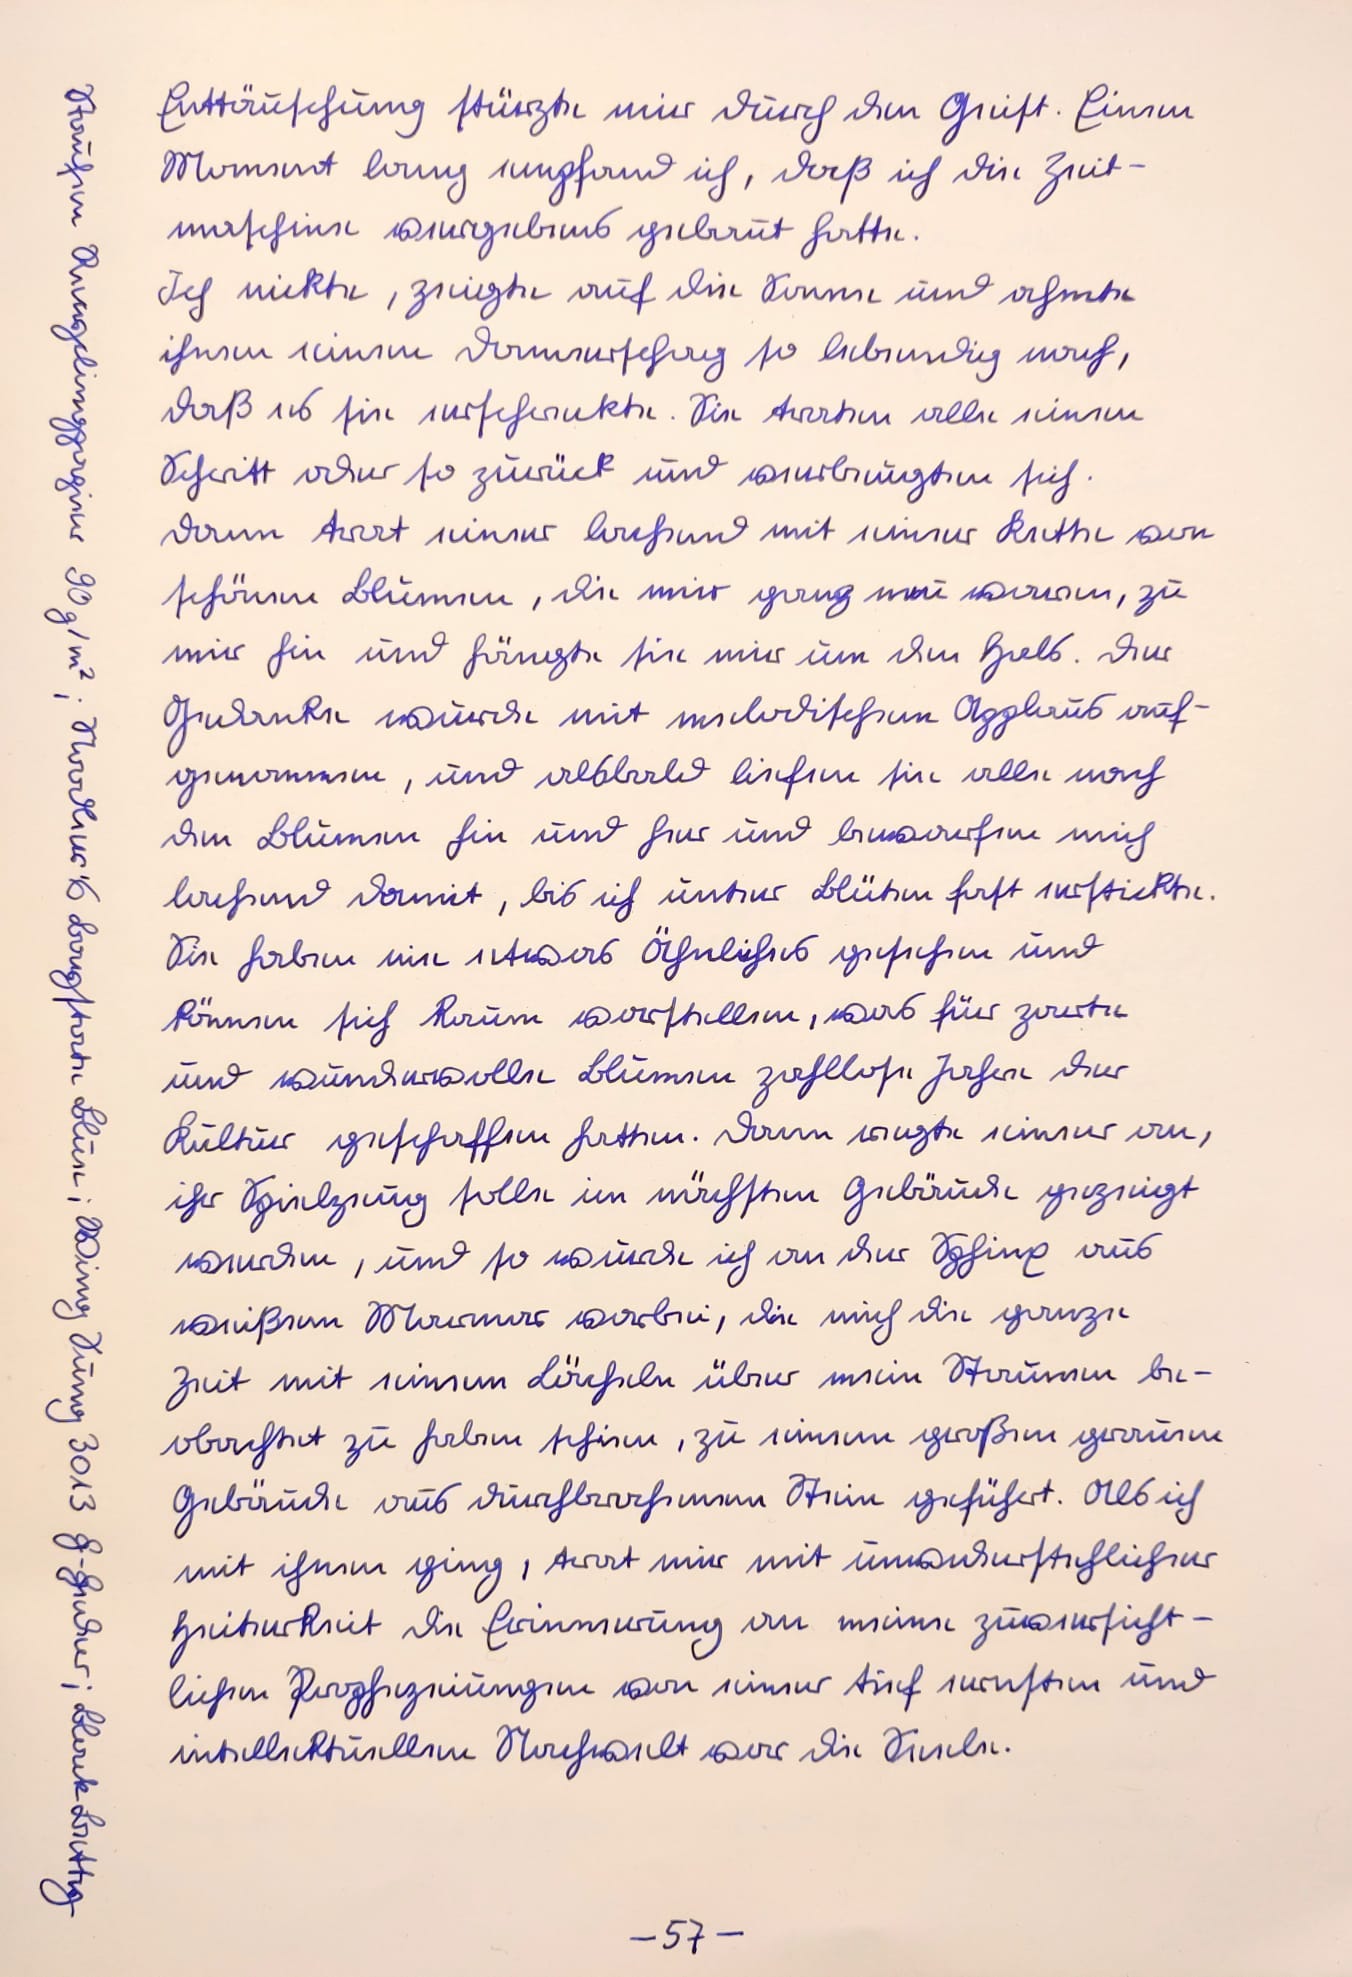 Enttäuschung stürzte mir durch den Geist. Einen
Moment lang empfand ich, daß ich die Zeit-
maschine vergebens gebaut hatte.
Ich nickte, zeigte auf die Sonne und ahmte
ihnen einen Donnerschag so lebendig nach,
daß es sie erschreckte. Sie traten alle einen
Schritt oder so zurück und verbeugten sich.
Dann trat einer lachend mit einer Kette von
schönen Blumen, die mir ganz neu waren, zu
mir hin und hängte sie mir um den Hals. Der
Gedanke wurde mit melodischem Applaus auf-
genommen, und alsbald liefen sie alle nach
den Blumen hin und her und bewarfen mich
lachend damit, bis ich unter Blüten fast erstickte.
Sie haben nie etwas Ähnliches gesehen und
können sich kaum vorstellen, was für zarte
und wundervolle Blumen zahllose Jahre der
Kultur geschaffen hatten. Dann regte einer an,
ihr Spielzeug solle im nächsten Gebäude gezeigt
werden, und so wurde ich an der Sphinx aus
weißem Marmor vorbei, die mich die ganze
Zeit mit einem Lächeln über mein Staunen be-
obachtet zu haben schien, zu einem großen grauen
Gebäude aus durchbrochenem Stein geführt. Als ich
mit ihnen ging, trat mir mit unwiderstehlicher
Heiterkeit die Erinnerung an meine zuversicht-
lichen Prophezeiungen von einer tief ernsten und
intellektuellen Nachwelt vor die Seele.
-57-
90 g/m²; Noodler's Bay State Blue; Wing Sung 3013 F-Feder;